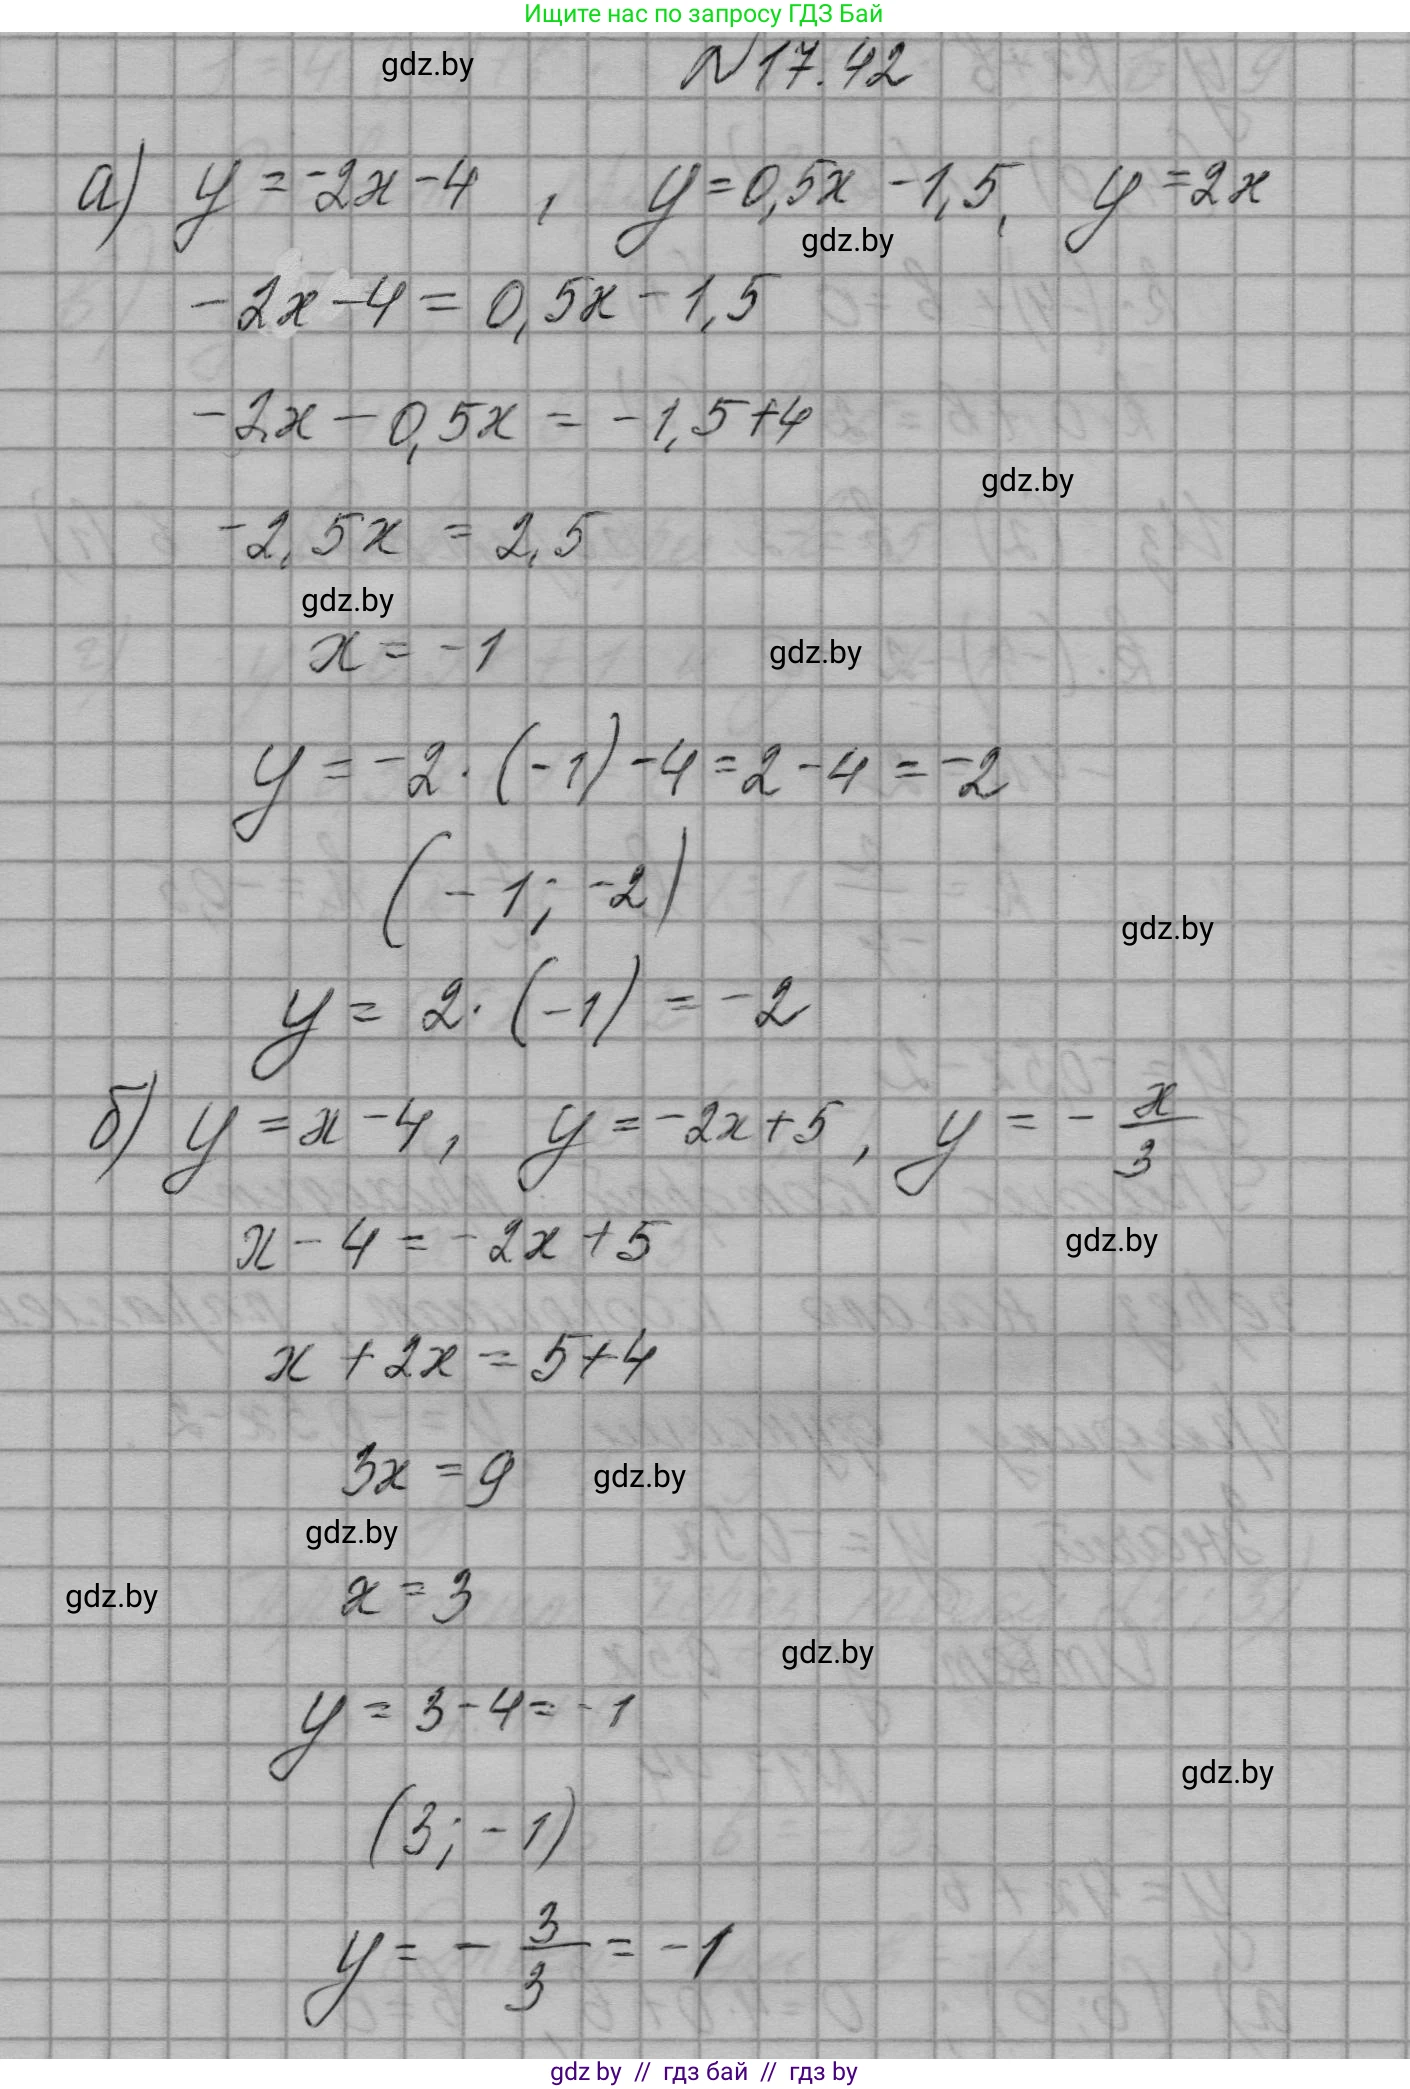 Ищите нас по запросу ГДЗ Бай
gdz.by
№17.42
а) y = -2x - 4 , y = 0,5x - 1,5, y = 2x
gdz.by
-2x - 4 = 0,5x - 1,5
-2x - 0,5x = -1,5 + 4
gdz.by
-2,5x = 2,5
gdz.by
x = -1
gdz.by
y = -2 · (-1) - 4 = 2 - 4 = -2
(-1; -2)
gdz.by
y = 2 · (-1) = -2
б) y = x - 4, y = -2x + 5, y = - x/3
x - 4 = -2x + 5
gdz.by
x + 2x = 5 + 4
3x = 9
gdz.by
gdz.by
x = 3
gdz.by
gdz.by
y = 3 - 4 = -1
gdz.by
(3; -1)
y = - 3/3 = -1
gdz by // гдз бай // гдз by